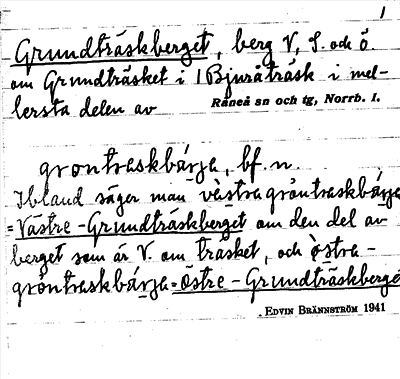 1
Grundträskberget, berg V, S. och ö
om Grundträsket i 1 Bjuråträsk i mel-
lersta delen av Råneå sn och tg, Norrb. l.
grøntraskbárja, bf. n.
Ibland säger man västragrøntraskbárja
= Västre-Grundträskberget om den del av
berget som är V. om träsket, och östra-
grøntraskbárja = östre-Grundträskberge
EDVIN BRÄNNSTRÖM 1941